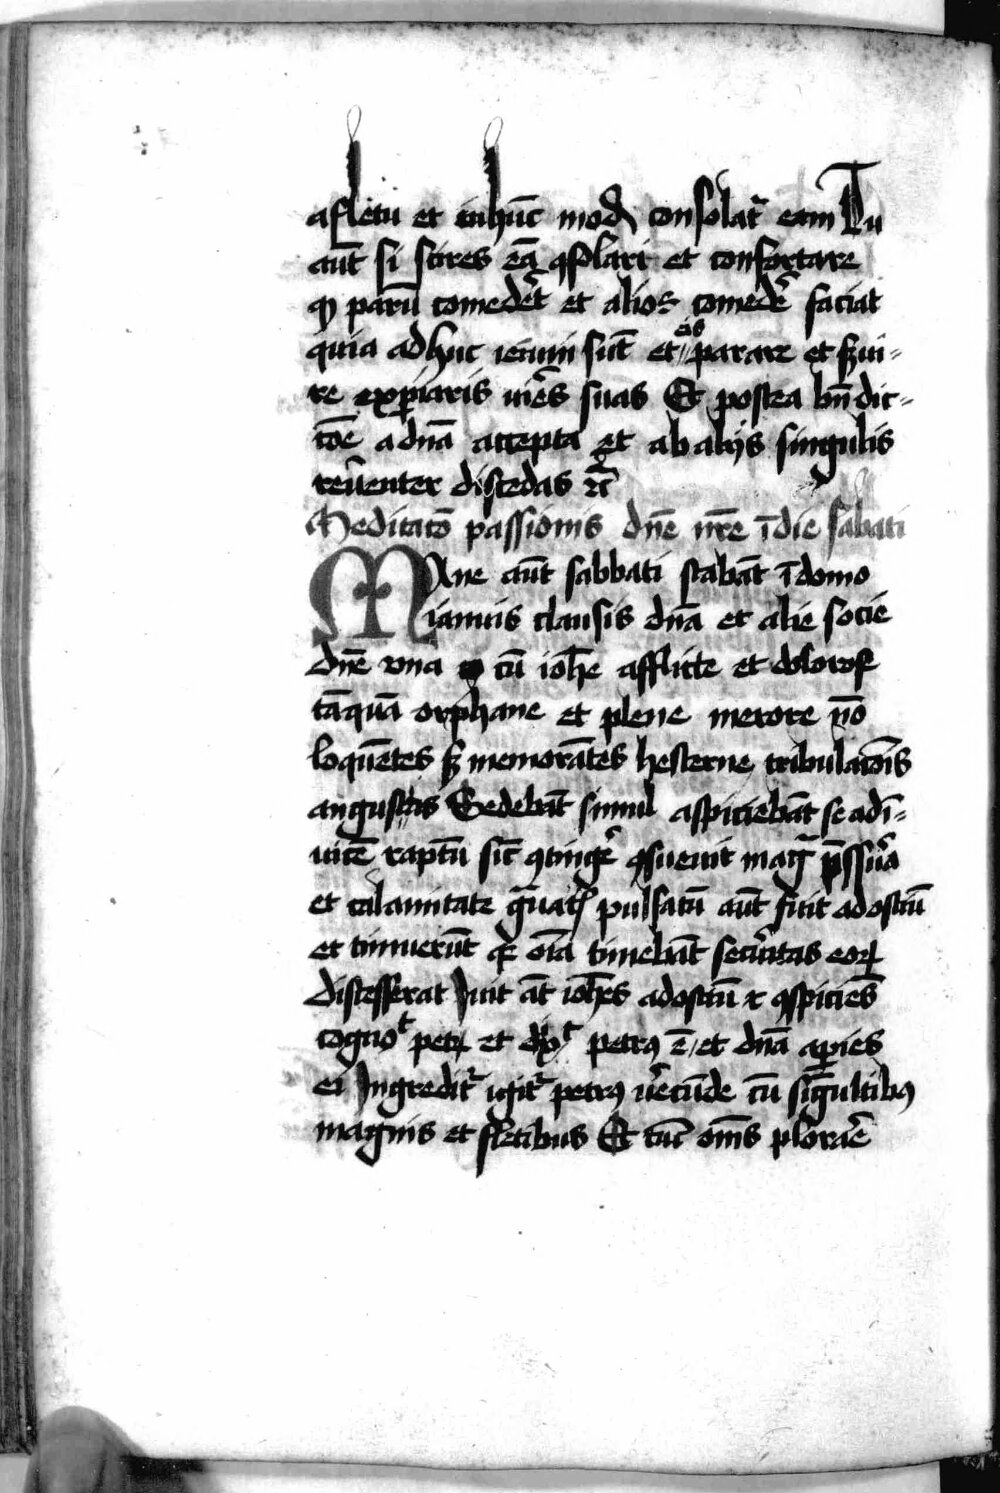 a fletu et in hūc modū consolat᷑ eam Tu
aūt si scires eā ꝯsolari et confortare
ꝙ parū comedēt et alios comedē᷑ faciat
quia adhuc ieiuni sūt et eis parare et s̄ui-
re exp̱iaris vic̄es suas Et postea bn̄dic-
cōe a dn̄a accepta et ab alijs singulis
reūenter discedas ⁊c̄
Meditatō passionis dn̄e nr̄e ī die sabati
Mane aūt sabbati stabāt ī domo
ianuis clausis dn̄a et alie socie
dn̄e vna cū ioh̄e afflicte et dolorose
tāquā orphane et plene merore nō
loquētes sꝫ memorātes hesterne tribulacōis
angustias Sedebāt simul aspiciebāt se ad ī-
uicē raptū sic̄ ꝯtinge᷑ ꝯsueuit
et calamitate g̃uatꝭ pulsatū aūt fuit ad ostiū
et timuerūt qꝛ oīa timebāt secur̄itas eoꝝ
discesserat Iuit āt ioh̄es ad ostiū ⁊ ꝯspiciēs
cognoᵗ petꝝ et dixᵗ petrꝰ ē et dn̄a aṗies
ei Ingredit᷑ igit᷑ petrꝰ v̄ecūde cū singultibꝰ
magnis et fletibus Et tūc om̄s plorar̄e